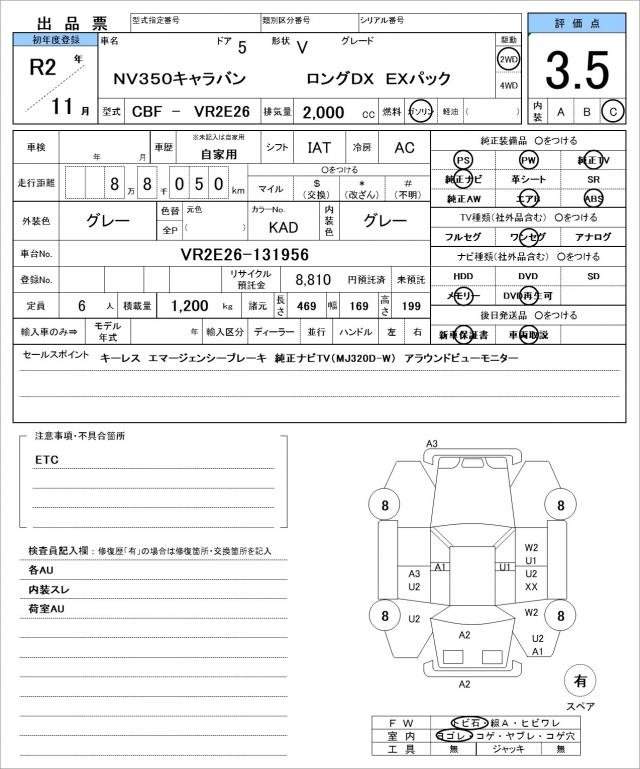 出品票 型式指定番号 類別区分番号 シリアル番号
評価点
初年度登録 車名 ドア 5 形状 V グレード 駆動
R2 年 NV350キャラバン ロングDX EXパック 2WD 3.5
4WD
11 月 型式 CBF － VR2E26 排気量 2,000 cc 燃料 ガソリン 軽油 ( ) 内装 A B C
車検 年 月 車歴 ※未記入は自家用 自家用 シフト IAT 冷房 AC
純正装備品 〇をつける
PS PW 純正TV
走行距離 8 万 8 千 0 5 0 km 〇をつける
マイル $ (交換) * (改ざん) # (不明)
純正ナビ 革シート SR
純正AW エアB ABS
外装色 グレー 色替 元色 カラーNo. KAD 内装色 グレー
全P ( )
TV種類(社外品含む) 〇をつける
フルセグ ワンセグ アナログ
車台No. VR2E26-131956
ナビ種類(社外品含む) 〇をつける
登録No. リサイクル預託金 8,810 円預託済 未預託
HDD DVD SD
定員 6 人 積載量 1,200 kg 諸元 長さ 469 幅 169 高さ 199
メモリー DVD再生可
後日発送品 〇をつける
輸入車のみ⇒ モデル年式 年 輸入区分 ディーラー 並行 ハンドル 左 右
新車保証書 車両取説
セールスポイント キーレス エマージェンシーブレーキ 純正ナビTV(MJ320D-W) アラウンドビューモニター
注意事項・不具合箇所
ETC
検査員記入欄：修復歴「有」の場合は修復箇所・交換箇所を記入
各AU
内装スレ
荷室AU
A3
8 8
W2
U1
A1 U1
A3 U2
U2 XX
8 8
U2 W2
A2 U2
A1
A2
有
スペア
FW トビ石・線A・ヒビワレ
室内 ヨゴレ・コゲ・ヤブレ・コゲ穴
工具 無 ジャッキ 無